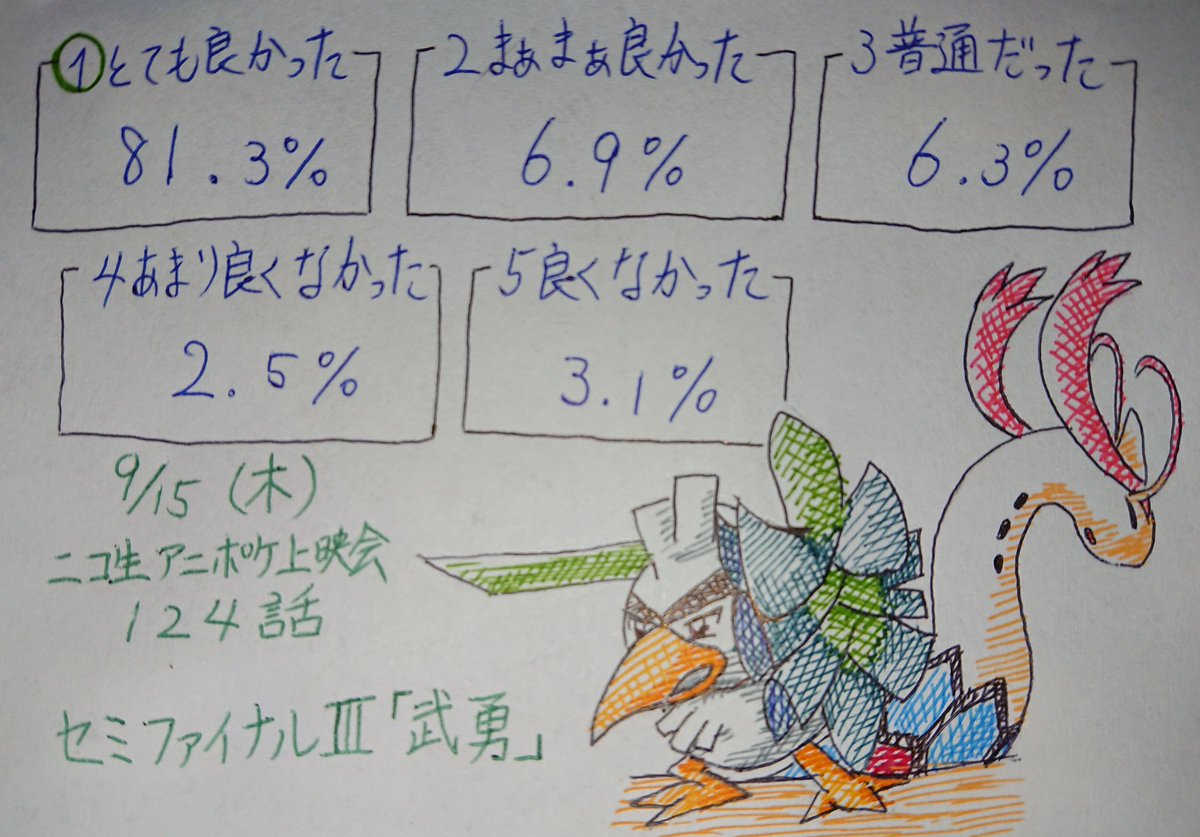 ①とても良かった
81.3%
2まぁまぁ良かった
6.9%
3普通だった
6.3%
4あまり良くなかった
2.5%
5良くなかった
3.1%
9/15(木)
ニコ生アニポケ上映会
124話
セミファイナルⅢ「武勇」